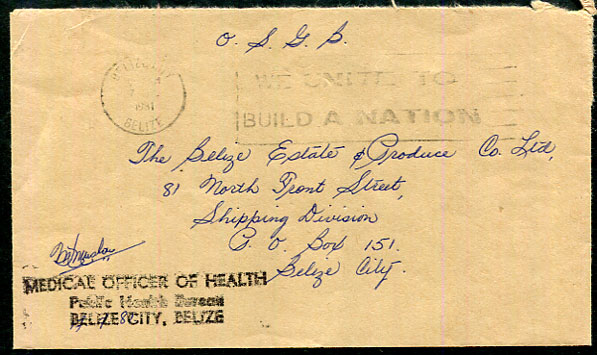 O. S. G. B.
BELIZE
1981
BELIZE
WE UNITE TO
BUILD A NATION
The Belize Estate & Produce Co. Ltd,
81 North Front Street,
Shipping Division
P. O. Box 151.
Belize City.
MEDICAL OFFICER OF HEALTH
Public Health Bureau
BELIZE CITY, BELIZE